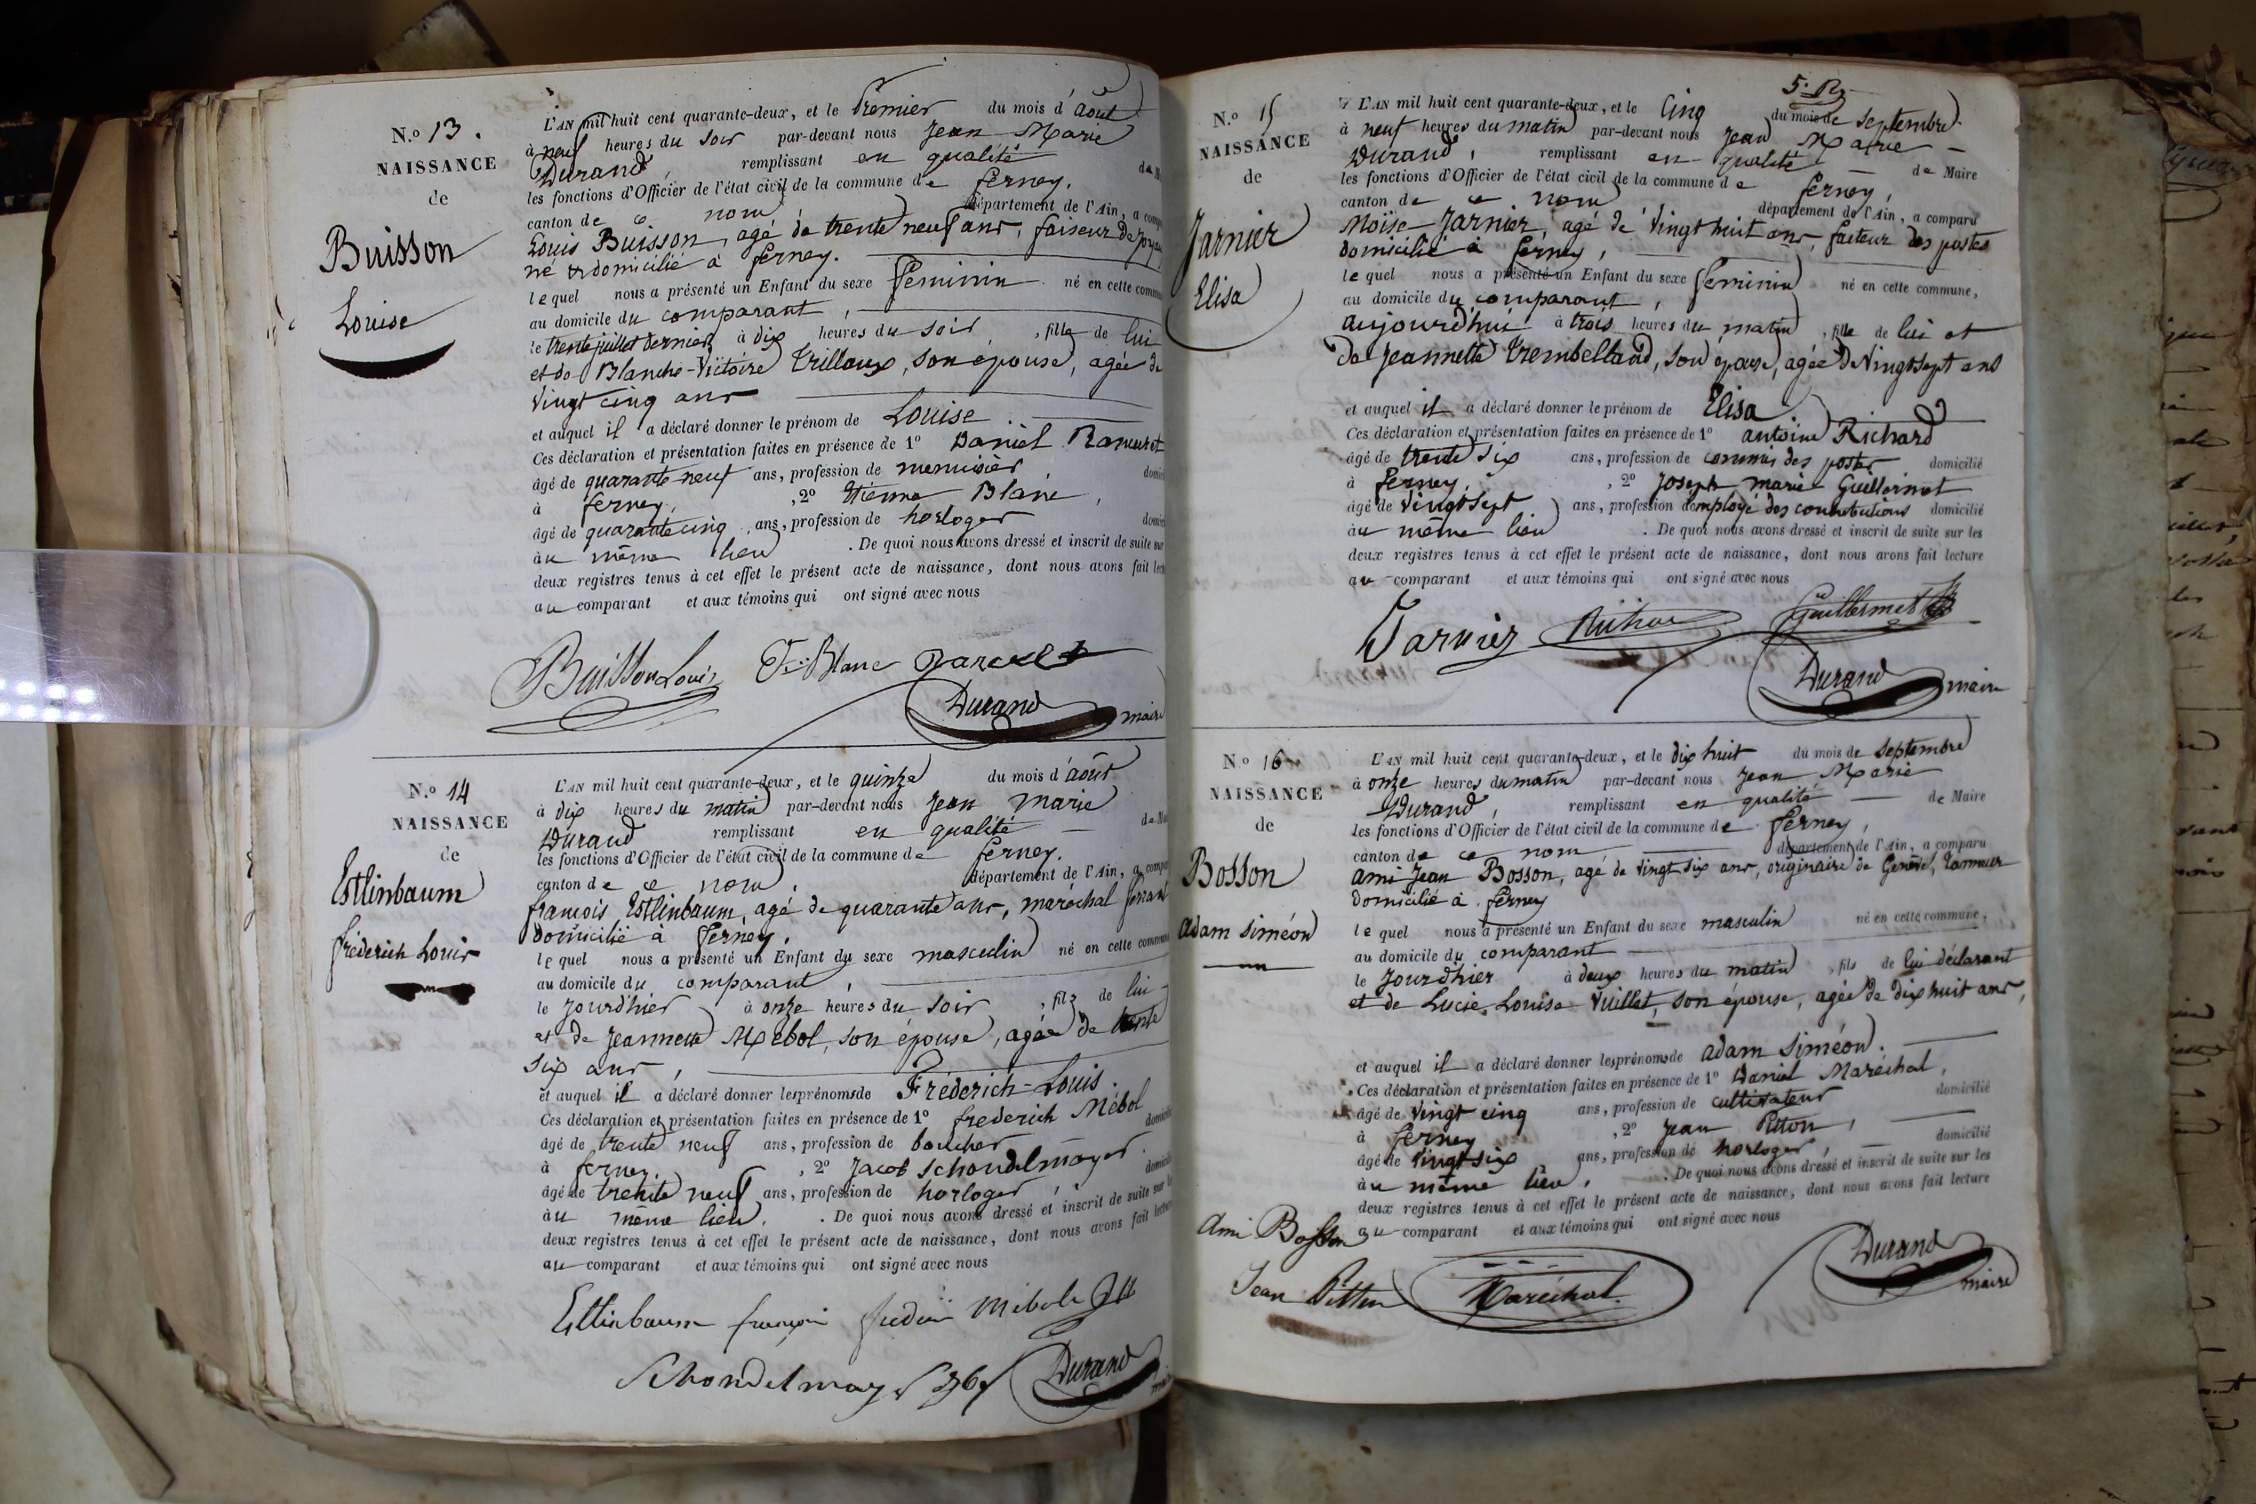 N.o 13.
NAISSANCE
de
Buisson
Louise
L'AN mil huit cent quarante-deux, et le Premier du mois d'août
à neuf heures du soir par-devant nous Jean Marie
Durand, remplissant en qualité de M
les fonctions d'Officier de l'état civil de la commune de ferney.
canton de ce nom, département de l'Ain, a compa
Louis Buisson, agé de trente neuf ans, faiseur de joyau
né et domicilié à ferney.
lequel nous a présenté un Enfant du sexe feminin né en cette commu
au domicile du comparant,
le trente juillet dernier à dix heures du soir, fille de lui
et de Blanche-Victoire Trilloux, son épouse, agée de
vingt cinq ans
et auquel il a déclaré donner le prénom de Louise
Ces déclaration et présentation faites en présence de 1o Daniel
âgé de quarante neuf ans, profession de menuisier, domici
à ferney, 2o Etienne Blanc,
âgé de quarante cinq ans, profession de horloger domici
au même lieu. De quoi nous avons dressé et inscrit de suite sur
deux registres tenus à cet effet le présent acte de naissance, dont nous avons fait lect
au comparant et aux témoins qui ont signé avec nous
Buisson Louis E Blanc
Durand maire
N.o 14
NAISSANCE
de
Estlinbaum
fréderich Louis
L'AN mil huit cent quarante-deux, et le quinze du mois d'août
à dix heures du matin par-devant nous Jean Marie
Durand remplissant en qualité de Ma
les fonctions d'Officier de l'état civil de la commune de ferney.
canton de ce nom, département de l'Ain, a compa
françois Estlinbaum, agé de quarante ans, maréchal ferrant
domicilié à ferney,
lequel nous a présenté un Enfant du sexe masculin né en cette commun
au domicile du comparant,
le jour d'hier à onze heures du soir, fils de lui
et de Jeannette Mebol, son épouse, agée de trente
six ans,
et auquel il a déclaré donner les prénoms de Fréderich-Louis.
Ces déclaration et présentation faites en présence de 1o frederich Mébol
âgé de trente neuf ans, profession de boucher domicili
à ferney. , 2o Jacob Schondelmayer.
âgé de trente neuf ans, profession de horloger, domicili
au même lieu. De quoi nous avons dressé et inscrit de suite sur l
deux registres tenus à cet effet le présent acte de naissance, dont nous avons fait lectur
au comparant et aux témoins qui ont signé avec nous
Estlinbaum françois
Durand
5. R
N.o 15
NAISSANCE
de
Jarnier
Elisa
L'AN mil huit cent quarante-deux, et le Cinq du mois de septembre
à neuf heures du matin par-devant nous Jean Marie
Durand, remplissant en qualité de Maire
les fonctions d'Officier de l'état civil de la commune de ferney,
canton de ce nom département de l'Ain, a comparu
Moïse Jarnier, agé de vingt huit ans, facteur des postes
domicilié à ferney,
lequel nous a présenté un Enfant du sexe feminin né en cette commune,
au domicile du comparant,
aujourd'hui à trois heures du matin, fille de lui et
de Jeannette Trembelland, son épouse, agée de vingt sept ans
et auquel il a déclaré donner le prénom de Elisa
Ces déclaration et présentation faites en présence de 1o antoine Richard
âgé de trente six ans, profession de commis des postes domicilié
à ferney, 2o Joseph marie Guillermet
âgé de vingt sept ans, profession d'employé des contributions domicilié
au même lieu. De quoi nous avons dressé et inscrit de suite sur les
deux registres tenus à cet effet le présent acte de naissance, dont nous avons fait lecture
au comparant et aux témoins qui ont signé avec nous
Jarnier Richard Guillermet
Durand maire
N.o 16
NAISSANCE
de
Bosson
Adam Siméon
L'AN mil huit cent quarante-deux, et le dix huit du mois de septembre
à onze heures du matin par-devant nous Jean Marie
Durand, remplissant en qualité de Maire
les fonctions d'Officier de l'état civil de la commune de ferney,
canton de ce nom département de l'Ain, a comparu
ami Jean Bosson, agé de vingt six ans, originaire de Genève, Tanneur
domicilié à ferney
lequel nous a présenté un Enfant du sexe masculin né en cette commune,
au domicile du comparant
le jour d'hier à deux heures du matin, fils de lui déclarant
et de Lucie Louise Vuillet, son épouse, agée de dix huit ans,
et auquel il a déclaré donner les prénoms de adam siméon.
Ces déclaration et présentation faites en présence de 1o Daniel Maréchal,
âgé de vingt cinq ans, profession de cultivateur domicilié
à ferney, 2o Jean Pitton,
âgé de vingt six ans, profession de horloger, domicilié
au même lieu. De quoi nous avons dressé et inscrit de suite sur les
deux registres tenus à cet effet le présent acte de naissance, dont nous avons fait lecture
au comparant et aux témoins qui ont signé avec nous
Ami Bosson
Jean Pitton Maréchal Durand
maire